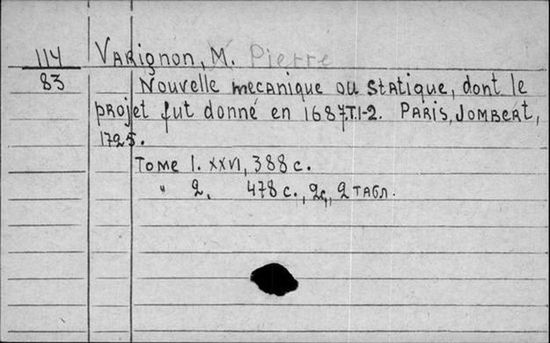 114 Varignon, M. Pierre
83 Nouvelle mecanique ou statique, dont le
projet fut donné en 1687. T.1-2. Paris, Jombert,
1725.
Tome 1. XXVI, 388 с.
" 2. 478 с., 2 табл.